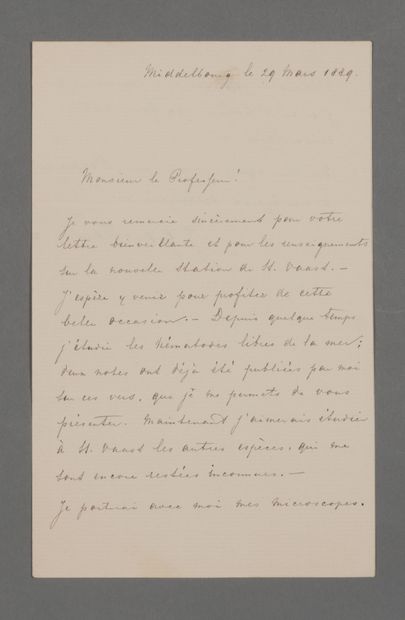 Middelbourg le 29 Mars 1889.
Monsieur le Professeur!
Je vous remercie sincèrement pour votre
lettre bienveillante et pour les renseignements
sur la nouvelle Station de St. Vaast. —
J'espère y venir pour profiter de cette
belle occasion. — Depuis quelque temps
j'étudie les Nématodes libres de la mer;
deux notes ont déjà été publiées par moi
sur ces vers, que je me permets de vous
présenter. Maintenant j'aimerais étudier
à St. Vaast les autres espèces, qui me
sont encore restées inconnues. —
Je porterai avec moi mes microscopes.